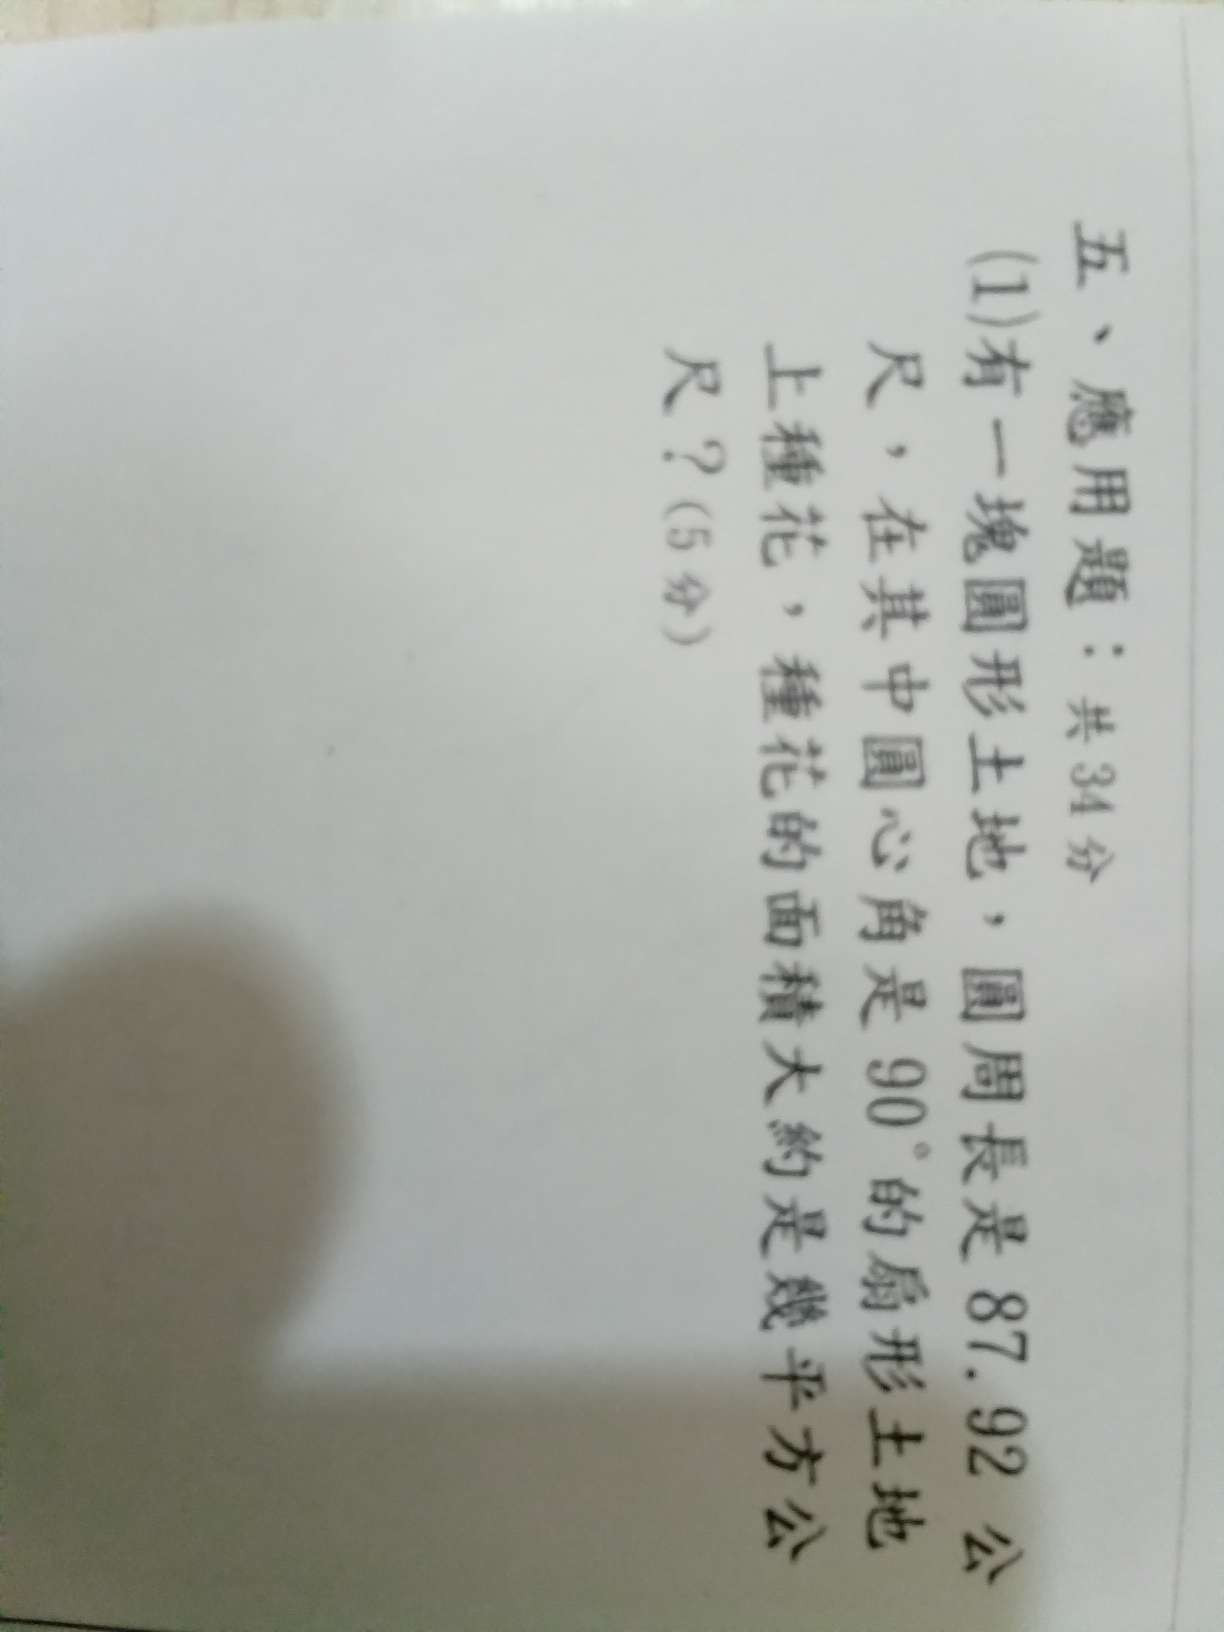 五、應用題：共34分
(1)有一塊圓形土地，圓周長是87.92 公
尺，在其中圓心角是90°的扇形土地
上種花，種花的面積大約是幾平方公
尺？(5分)